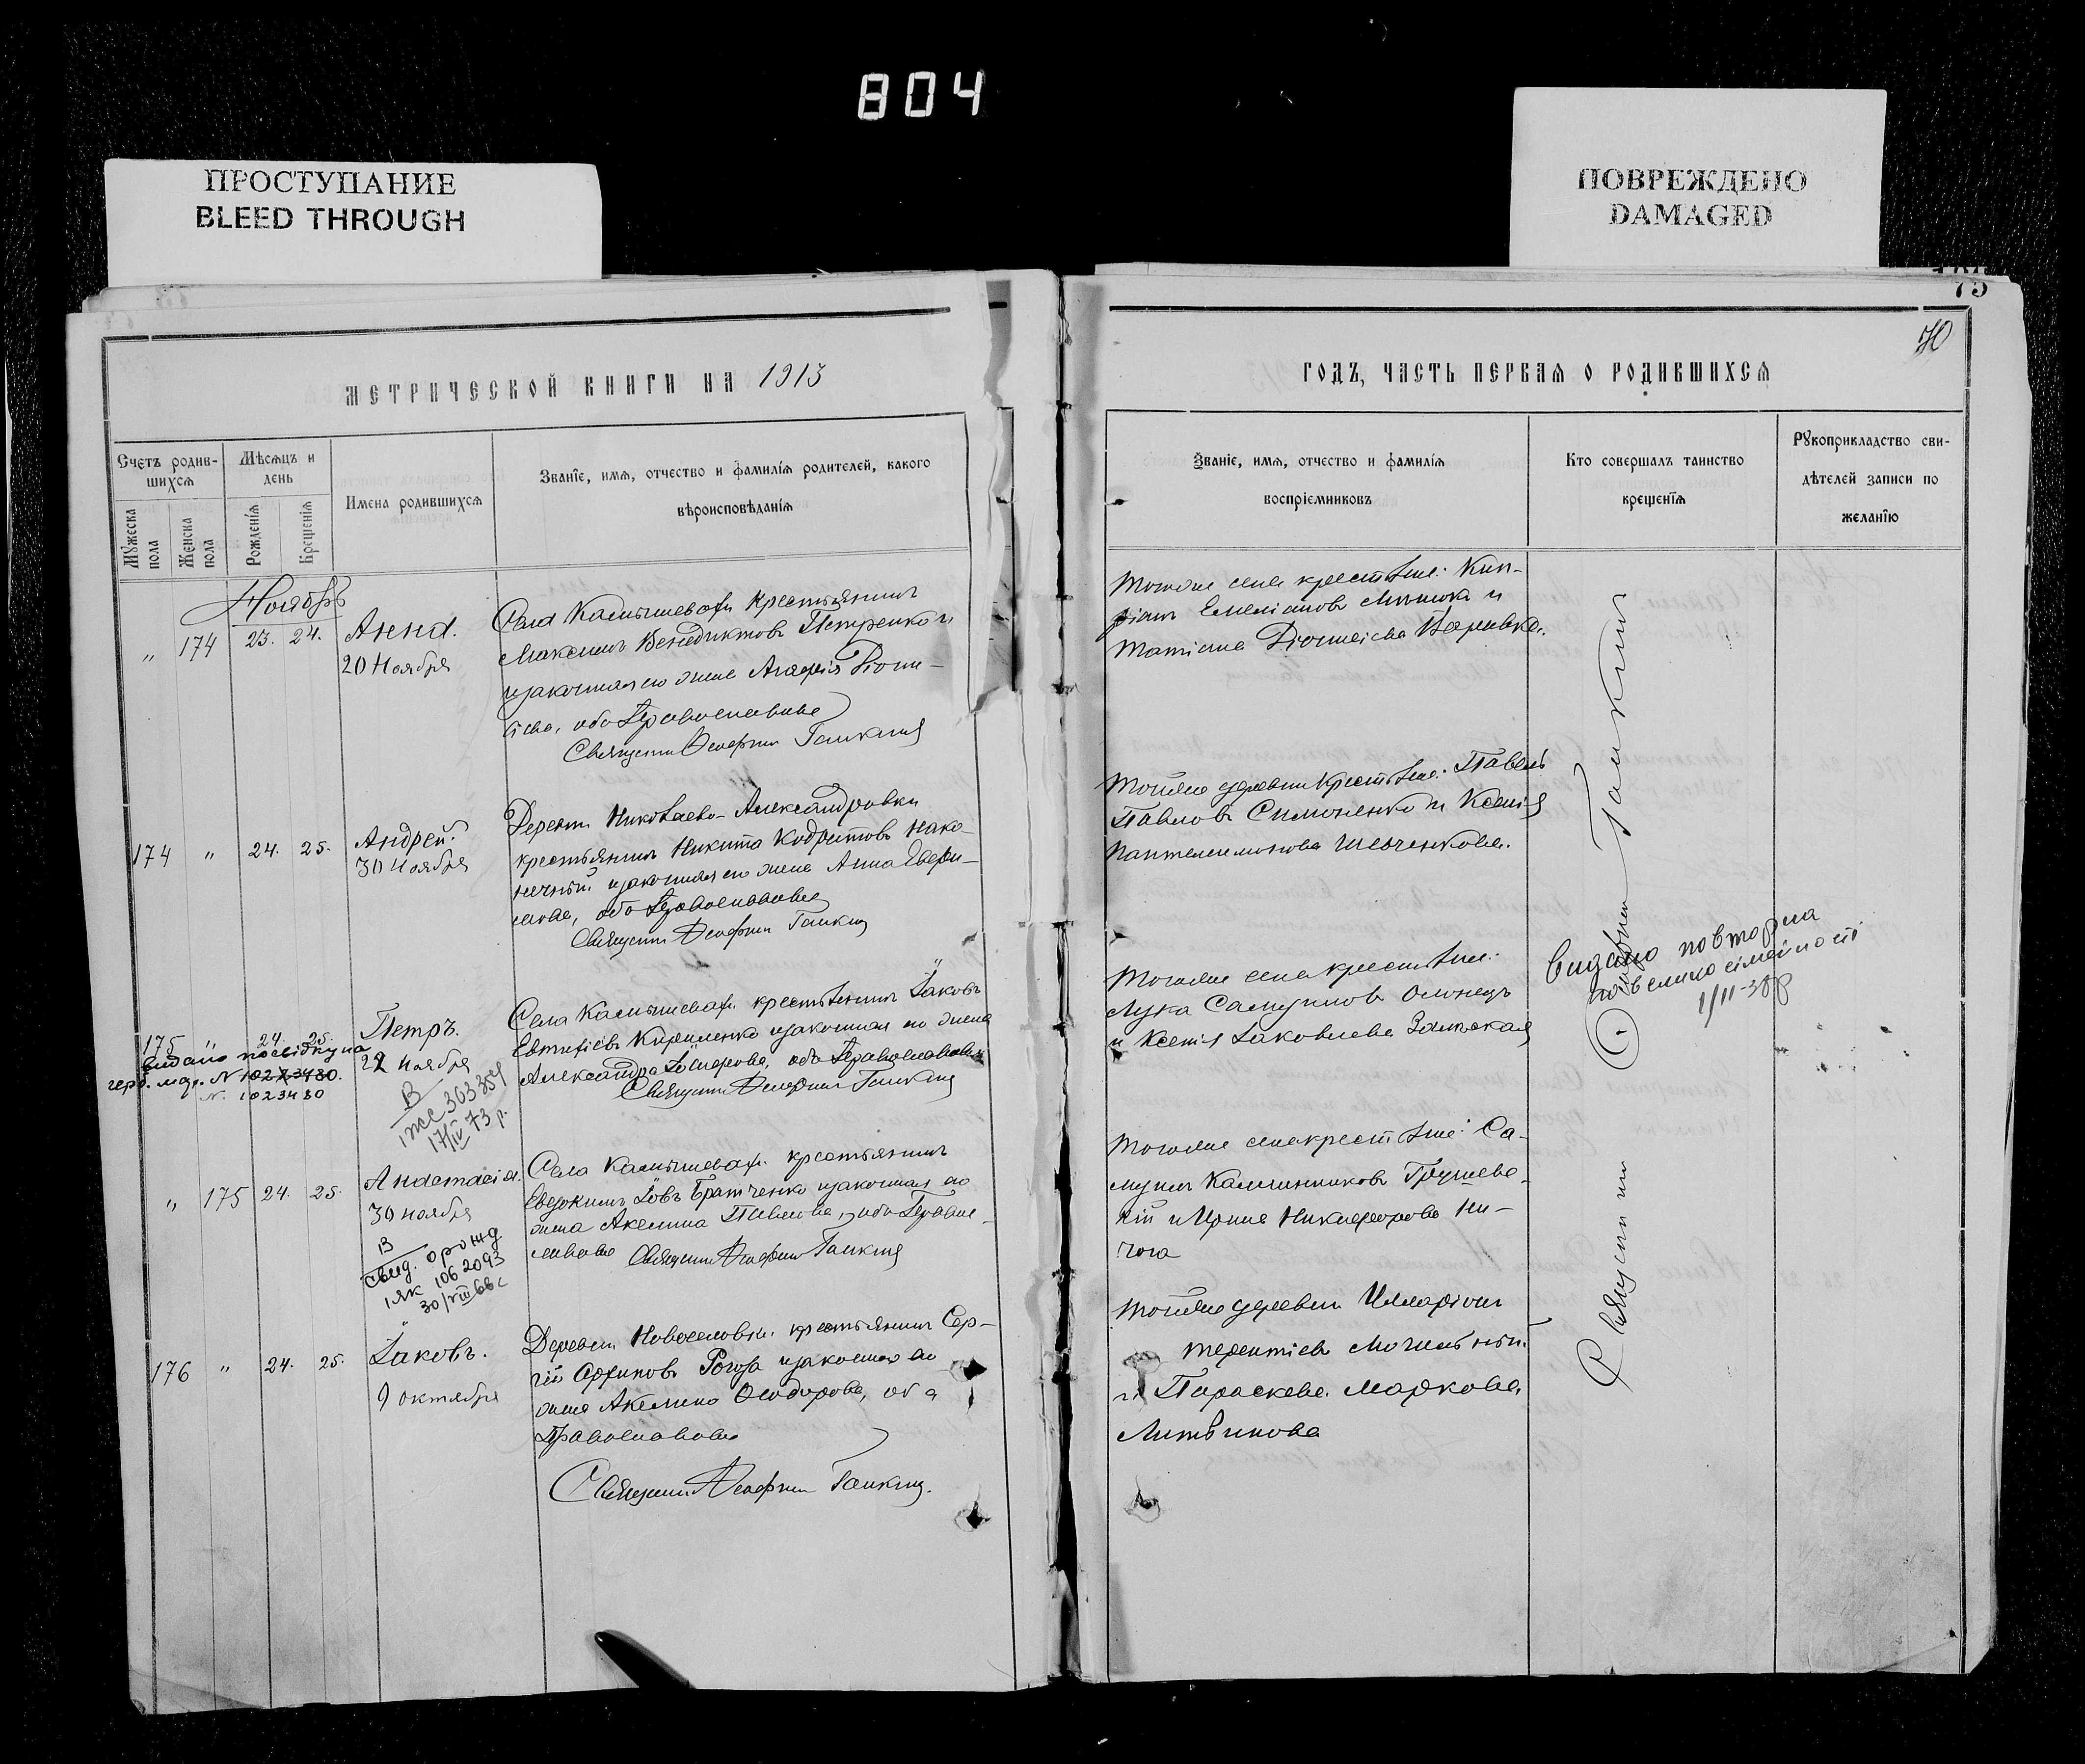 804
ПРОСТУПАНИЕ
BLEED THROUGH
ПОВРЕЖДЕНО
DAMAGED
75
70
МЕТРИЧЕСКОЙ КНИГИ НА 1913
ГОДЪ, ЧАСТЬ ПЕРВАЯ О РОДИВШИХСЯ
Счетъ родив-
шихся
Мужеска пола
Женска пола
Мѣсяцъ и
день
Рожденія
Крещенія
Имена родившихся
Званіе, имя, отчество и фамилія родителей, какого
вѣроисповѣданія
Званіе, имя, отчество и фамилія
воспріемниковъ
Кто совершалъ таинство
крещенія
Рукоприкладство сви-
дѣтелей записи по
желанію
Ноябрь
„ 174 23. 24.
Анна.
20 Ноября
Села Камышевахи крестьянинъ
Максимъ Венедиктовъ Петренко и
законная его жена Агафія
оба Православные
Священникъ Ганкинъ
крестьяне: Кип-
ріанъ Емеліановъ и
174 „ 24. 25.
Андрей.
30 Ноября
Деревни Николаево-Александровки
крестьянинъ Никита Кодратовъ Нако-
нечный и законная его жена Анна Евфи-
мова, оба Православные
Священникъ Ганкинъ
Тойже деревни крестьяне: Павелъ
Павловъ Симоненко и Ксенія
Пантелеимонова Шевченкова.
175 „ 24. 25.
Петръ.
22 Ноября
видано посвідку на
герб. мар. N 1023480.
N. 1023480
В
1 же 303354
17/IV 73 р.
Села Камышевахи крестьянинъ Іаковъ
Евтихіевъ Кириленко и законная его жена
Александра оба Православные
Священникъ Ганкинъ
Тогоже села крестьяне:
Лука Самуиловъ Олонецъ
и Ксенія Іаковлева
видано повторна
1/II-38 р
„ 175 24. 25.
Анастасія.
30 ноября
В
свид. о рожд
1 ЯК 1062093
30/VIII 66 г
Села Камышевахи крестьянинъ
Евдокимъ Іовъ Братченко и законная его
жена Акелина Павлова, оба Право-
славные Священникъ Ганкинъ
Тогоже села крестьяне: Са-
муилъ Калинниковъ Грушев-
кій и Ирина Никифорова Ни-
чога
176 „ 24. 25.
Іаковъ.
9 октября
Деревни Новоселовки крестьянинъ Сер-
гій Рогоза и законная его
жена Акелина Феодорова, оба
Православные
Священникъ Ганкинъ.
Тойже деревни Илларіонъ
Терентіевъ Могильный
и Параскева Маркова
Литвинова
Священникъ Ганкинъ